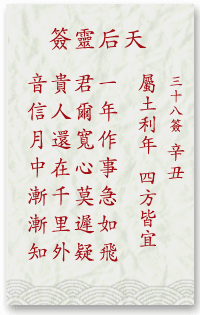 天后靈簽
三十八簽 辛丑
屬土利年 四方皆宜
一年作事急如飛
君爾寬心莫遲疑
貴人還在千里外
音信月中漸漸知